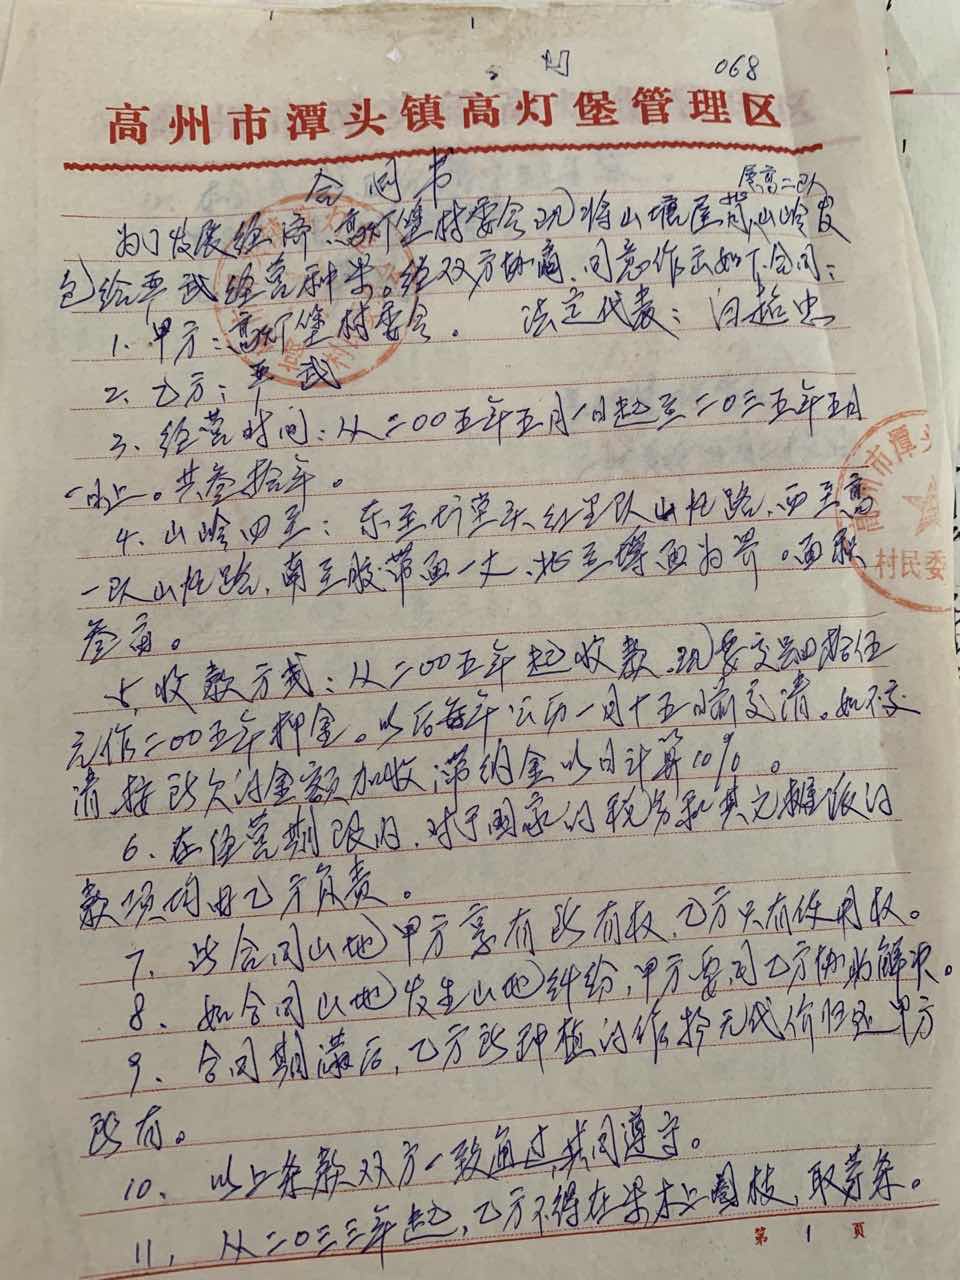 068
高州市潭头镇高灯堡管理区
合同书
属高二队
为了发展经济,高灯堡村委会现将山塘屋背山岭发
包给平武经营种果。经双方协商,同意作出如下合同:
1、甲方:高灯堡村委会。 法定代表:
2、乙方:平武
3、经营时间:从二00五年五月一日起至二0三五年五月
一日止。共叁拾年。
4、山岭四至:东至 红星队山 路,西至高
一队山 路,南至 带面一丈,北至 面为界。面积
叁亩。
5、收款方式:从二00五年起收款,现要交 四拾伍
元作二00五年押金。以后每年公历一月十五日前交清。如不交
清按所欠的金额加收滞纳金以日计算10%。
6、在经营期限内,对于国家的税务和其它摊派的
款项均由乙方负责。
7、此合同山地甲方享有所有权,乙方只有使用权。
8、如合同山地发生山地纠纷,甲方要同乙方协助解决。
9、合同期满后,乙方所种植的作物无代价归还甲方
所有。
10、以上条款双方一致通过,共同遵守。
11、从二0三三年起,乙方不得在果木上圈枝,取芽条。
第 1 页
高州市潭
村民委